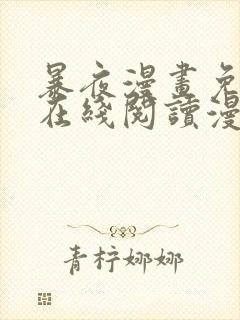 暴夜漫畫免
在綫閱讀漫
青柠娜娜